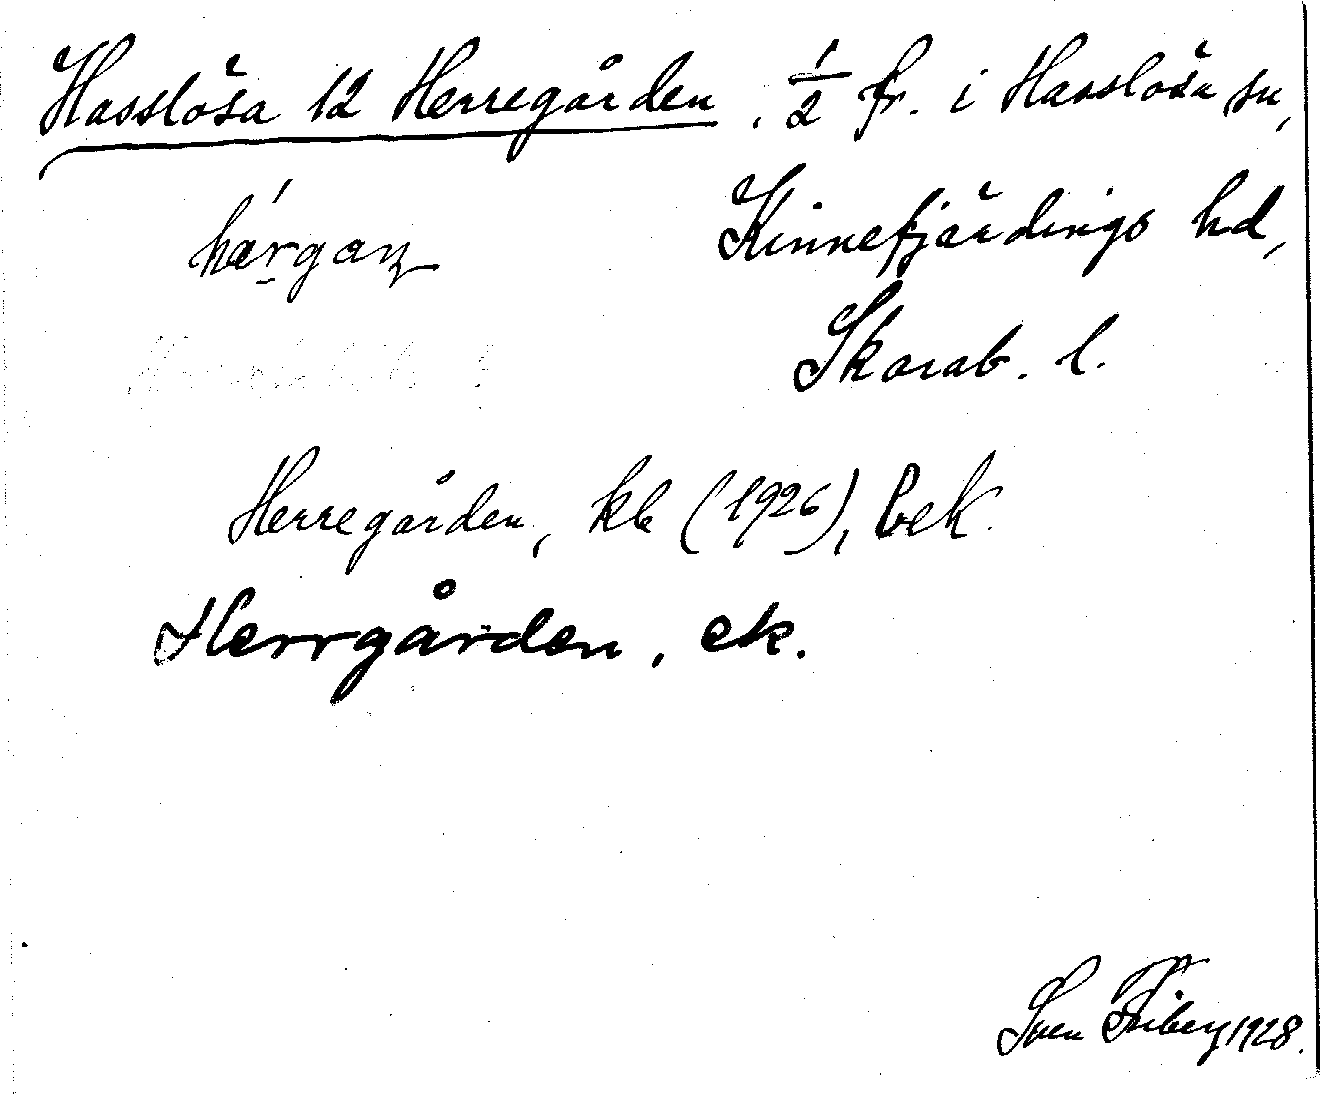 Hasslösa 12 Herregården, 1/2 fr. i Hasslösa sn,
hǽrgaɳ Kinnefjärdings hd,
Skarab. l.
Herregården, kb (1926), bek.
Herrgården, ek.
Sven Friberg 1928.